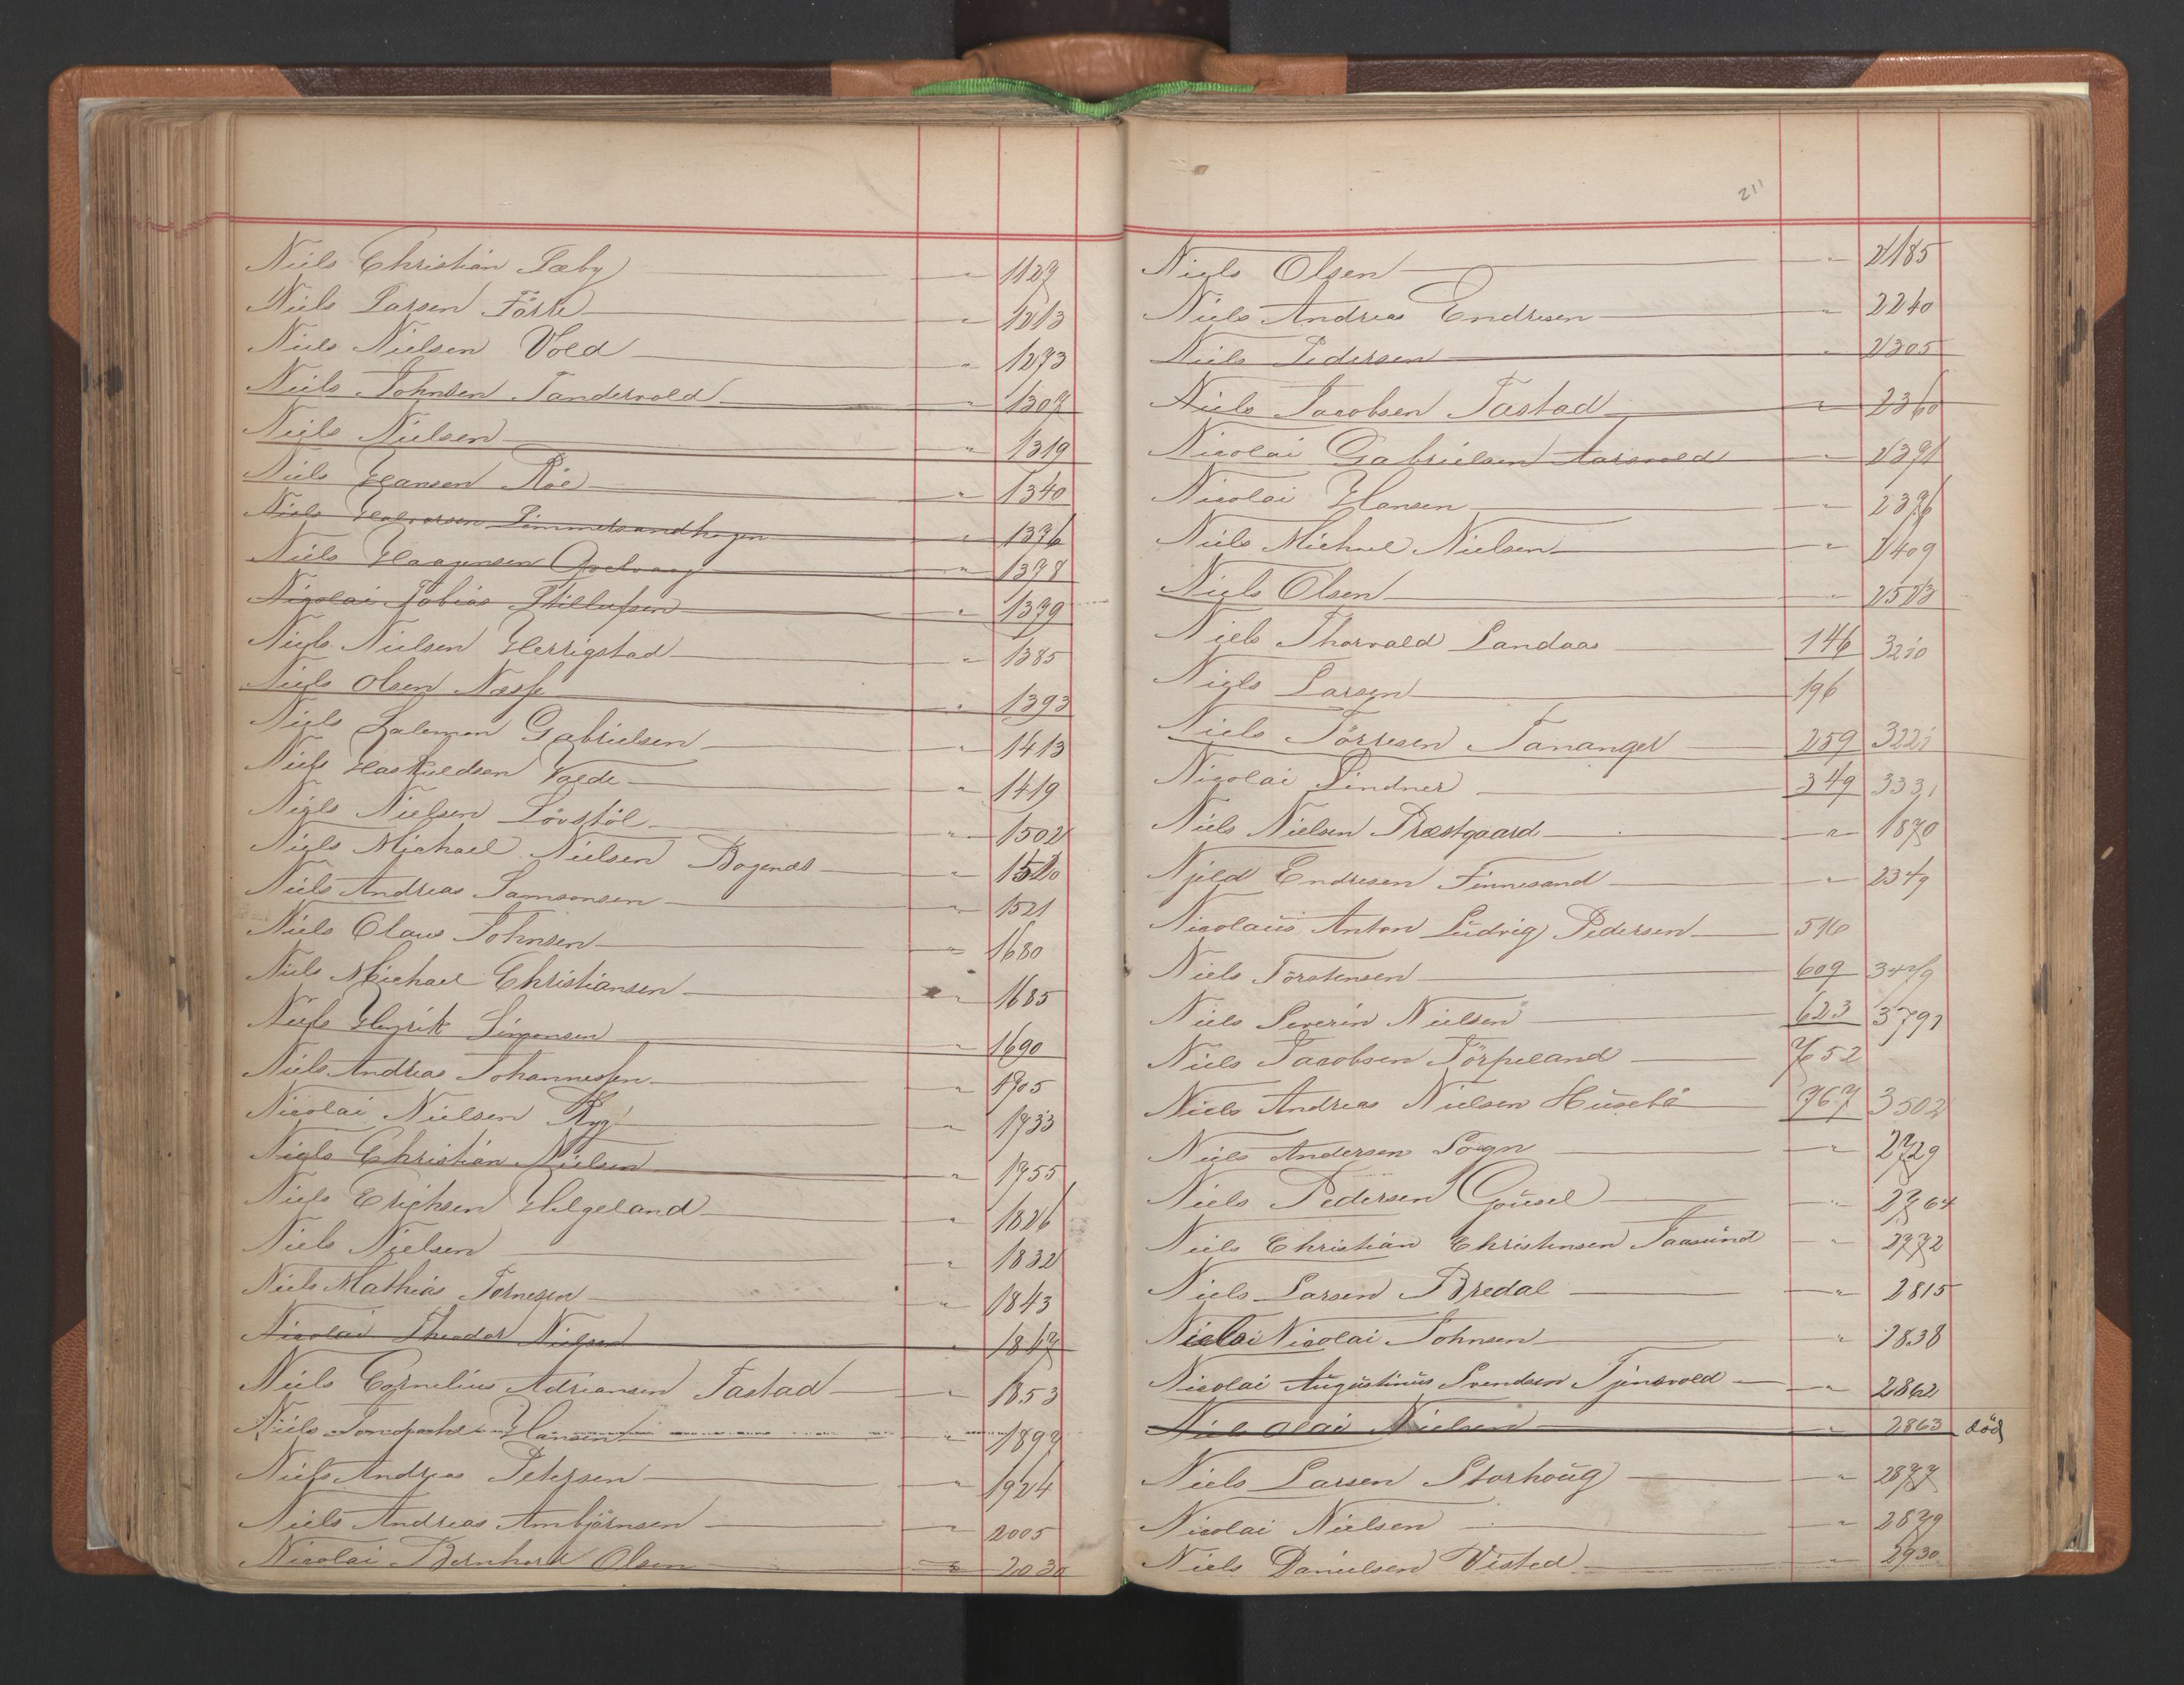 Niels Christian Sæby — " — 1127
Niels Larsen Förre — " — 1213
Niels Nielsen Vold — " — 1273
Niels Johnsen Tandervold — " — 1307
Niels Nielsen — " — 1319
Niels Hansen Röe — " — 1340
Niels Halvorsen Simmetsandhagen — " — 1376
Niels Haagensen — " — 1378
Nicolai Tobias — " — 1379
Niels Nielsen Herrigstad — " — 1385
Niels Olsen Næsse — " — 1393
Niels Salemon Gabrielsen — " — 1413
Niels Haskeldsen Valde — " — 1419
Niels Nielsen Lövstöl — " — 1502
Niels Michael Nielsen Bogenæs — " — 1520
Niels Andreas Samsonsen — " — 1521
Niels Claus Johnsen — " — 1680
Niels Michael Christiansen — " — 1685
Niels Henrik Simonsen — " — 1690
Niels Andreas Johannessen — " — 1705
Nicolai Nielsen Ryg — " — 1733
Niels Christian Nielsen — " — 1755
Niels Erichsen Helgeland — " — 1826
Niels Nielsen — " — 1832
Niels Mathias — " — 1843
Nicolai Theodor Nielsen — " — 1847
Niels Cornelius Adriansen Tastad — " — 1853
Niels Hansen — " — 1897
Niels Andreas Petersen — " — 1924
Niels Andreas Ambjörnsen — " — 2005
Nicolai Bernhard Olsen — " — 2030
211
Niels Olsen — " — 2185
Niels Andreas Endresen — " — 2240
Niels Pedersen — " — 2305
Niels Jacobsen Tastad — " — 2360
Nicolai Gabrielsen Aarsvold — " — 2371
Nicolai Hansen — " — 2376
Niels Michael Nielsen — " — 2409
Niels Olsen — " — 2523
Niels Thorvald Landaas — 146 3210
Niels Larsen — 196
Niels Törresen Tananger — 259 3221
Nicolai Lindner — 349 3331
Niels Nielsen Præstgaard — " — 1870
Njeld Endresen Finnesand — " — 2349
Nicolaus Anton Ludvig Pedersen — 516
Niels Törstensen — 609 3429
Niels Severin Nielsen — 623 3791
Niels Jacobsen Törpeland — 752
Niels Andreas Nielsen Husebö — 767 3502
Niels Andersen Sogn — " — 2729
Niels Pedersen Gousel — " — 2764
Niels Christian Christensen Taasund — " — 2772
Niels Larsen Bredal — " — 2815
Nicolai Johnsen — " 2838
Nicolai Augustinus Svendsen Tjensvold — " — 2862
Niels Olai Nielsen — " — 2863 död
Niels Larsen Storhoug — " — 2877
Nicolai Nielsen — " — 2879
Niels Danielsen Visted — " — 2930